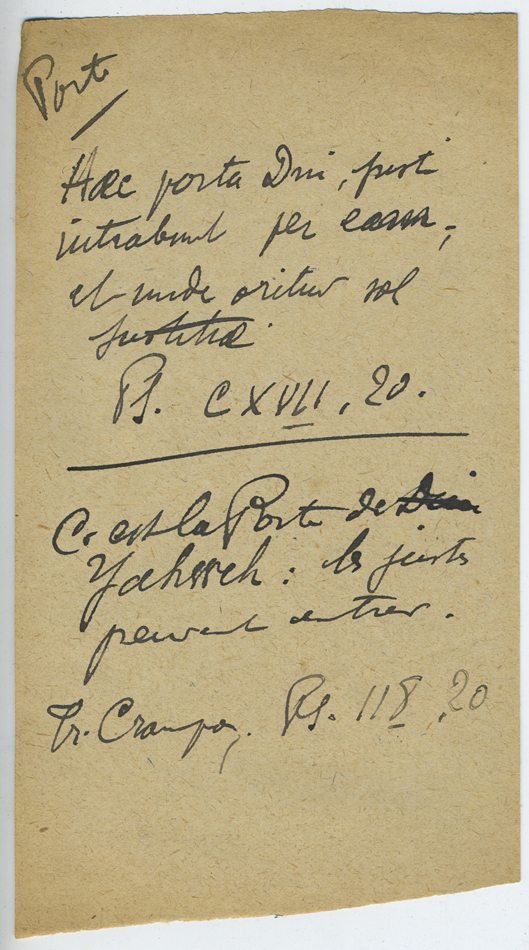 Porte
Haec porta Dni, justi
intrabunt per eam,
et unde oritur sol
justitiae.
Ps. CXVII, 20.
C'est la Porte de Dieu
Yahweh : les justes
peuvent entrer.
Tr. Crampon. Ps. 118, 20